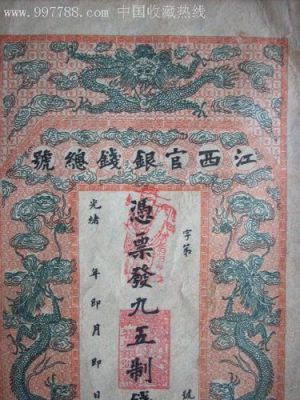 www.997788.com 中国收藏热线
江西官銀錢總號
字第
號
憑票發九五制錢
光緒 年 即 月 即 日